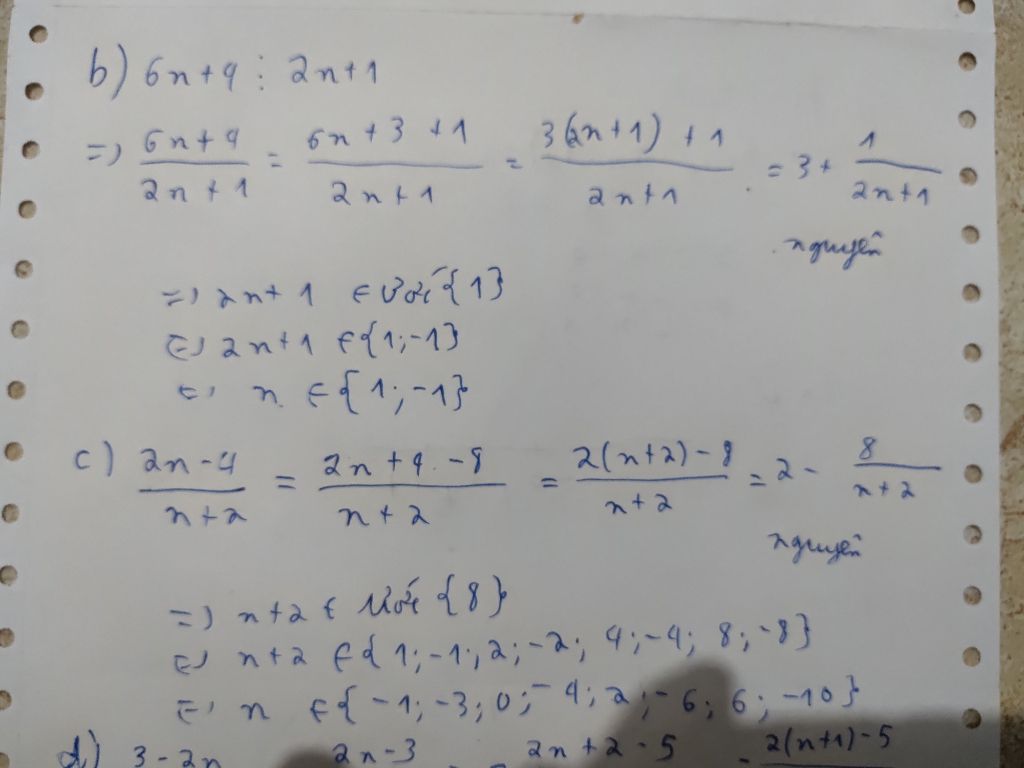 b) 6n+4 ⋮ 2n+1
=> (6n+4)/(2n+1) = (6n+3+1)/(2n+1) = (3(2n+1)+1)/(2n+1) = 3 + 1/(2n+1)
nguyên
=> 2n+1 ∈ Ước {1}
<=> 2n+1 ∈ {1;-1}
<=> n ∈ {1;-1}
c) (2n-4)/(n+2) = (2n+4-8)/(n+2) = (2(n+2)-8)/(n+2) = 2 - 8/(n+2)
nguyên
=> n+2 ∈ Ước {8}
<=> n+2 ∈ {1;-1;2;-2;4;-4;8;-8}
<=> n ∈ {-1;-3;0;-4;2;-6;6;-10}
d) 3-2n 2n-3 = 2n+2-5 = 2(n+1)-5